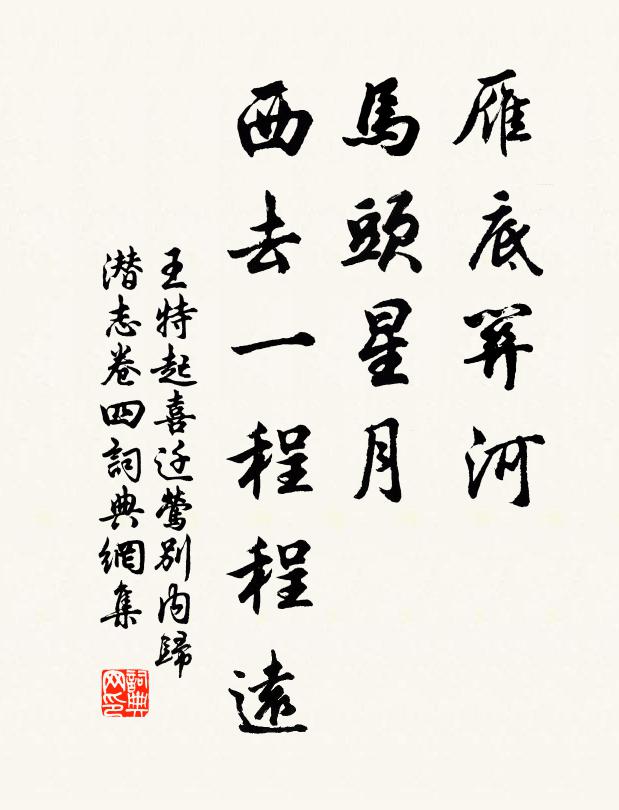 雁底關河
馬頭星月
西去一程程遠
王特起喜迁鶯別内歸
潜志卷四詞典網集
詞典网印